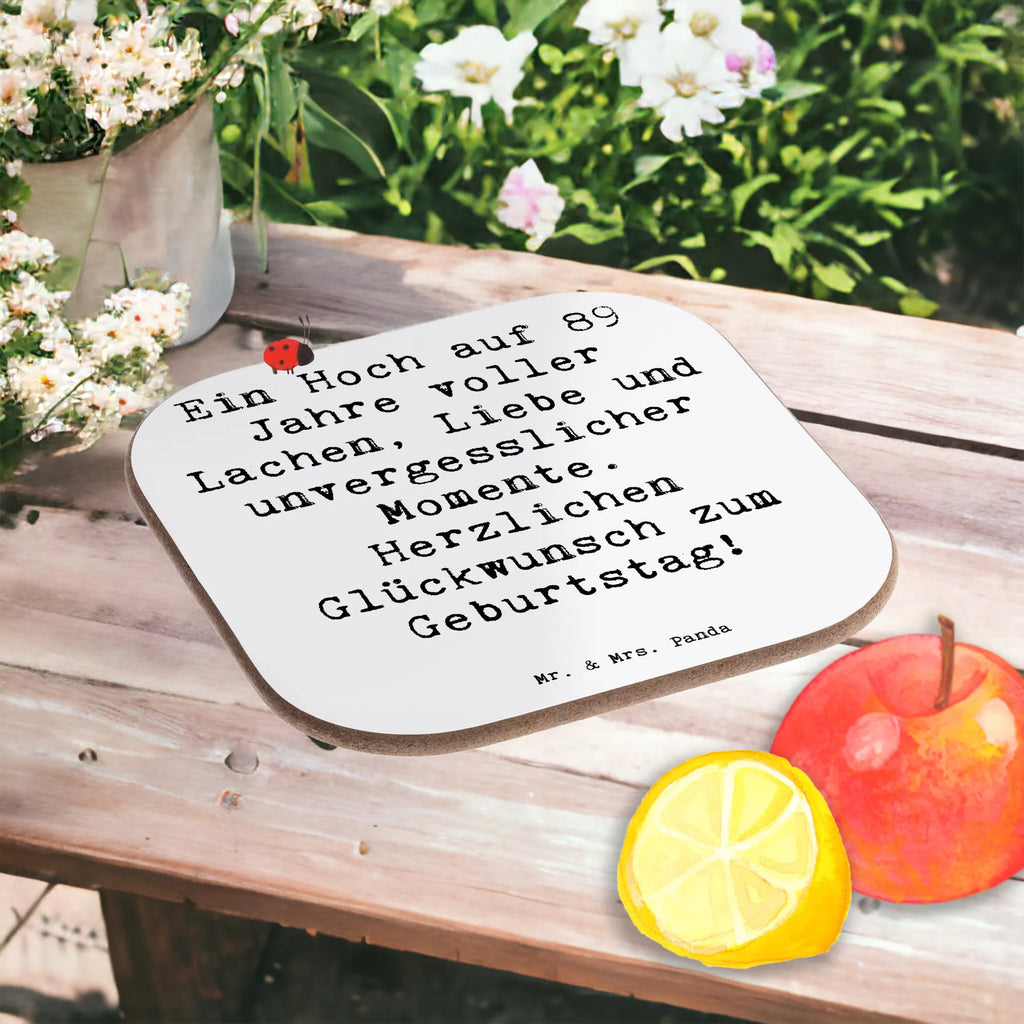 Ein Hoch auf 89
Jahre voller
Lachen, Liebe und
unvergesslicher
Momente.
Herzlichen
Glückwunsch zum
Geburtstag!
Mr. & Mrs. Panda